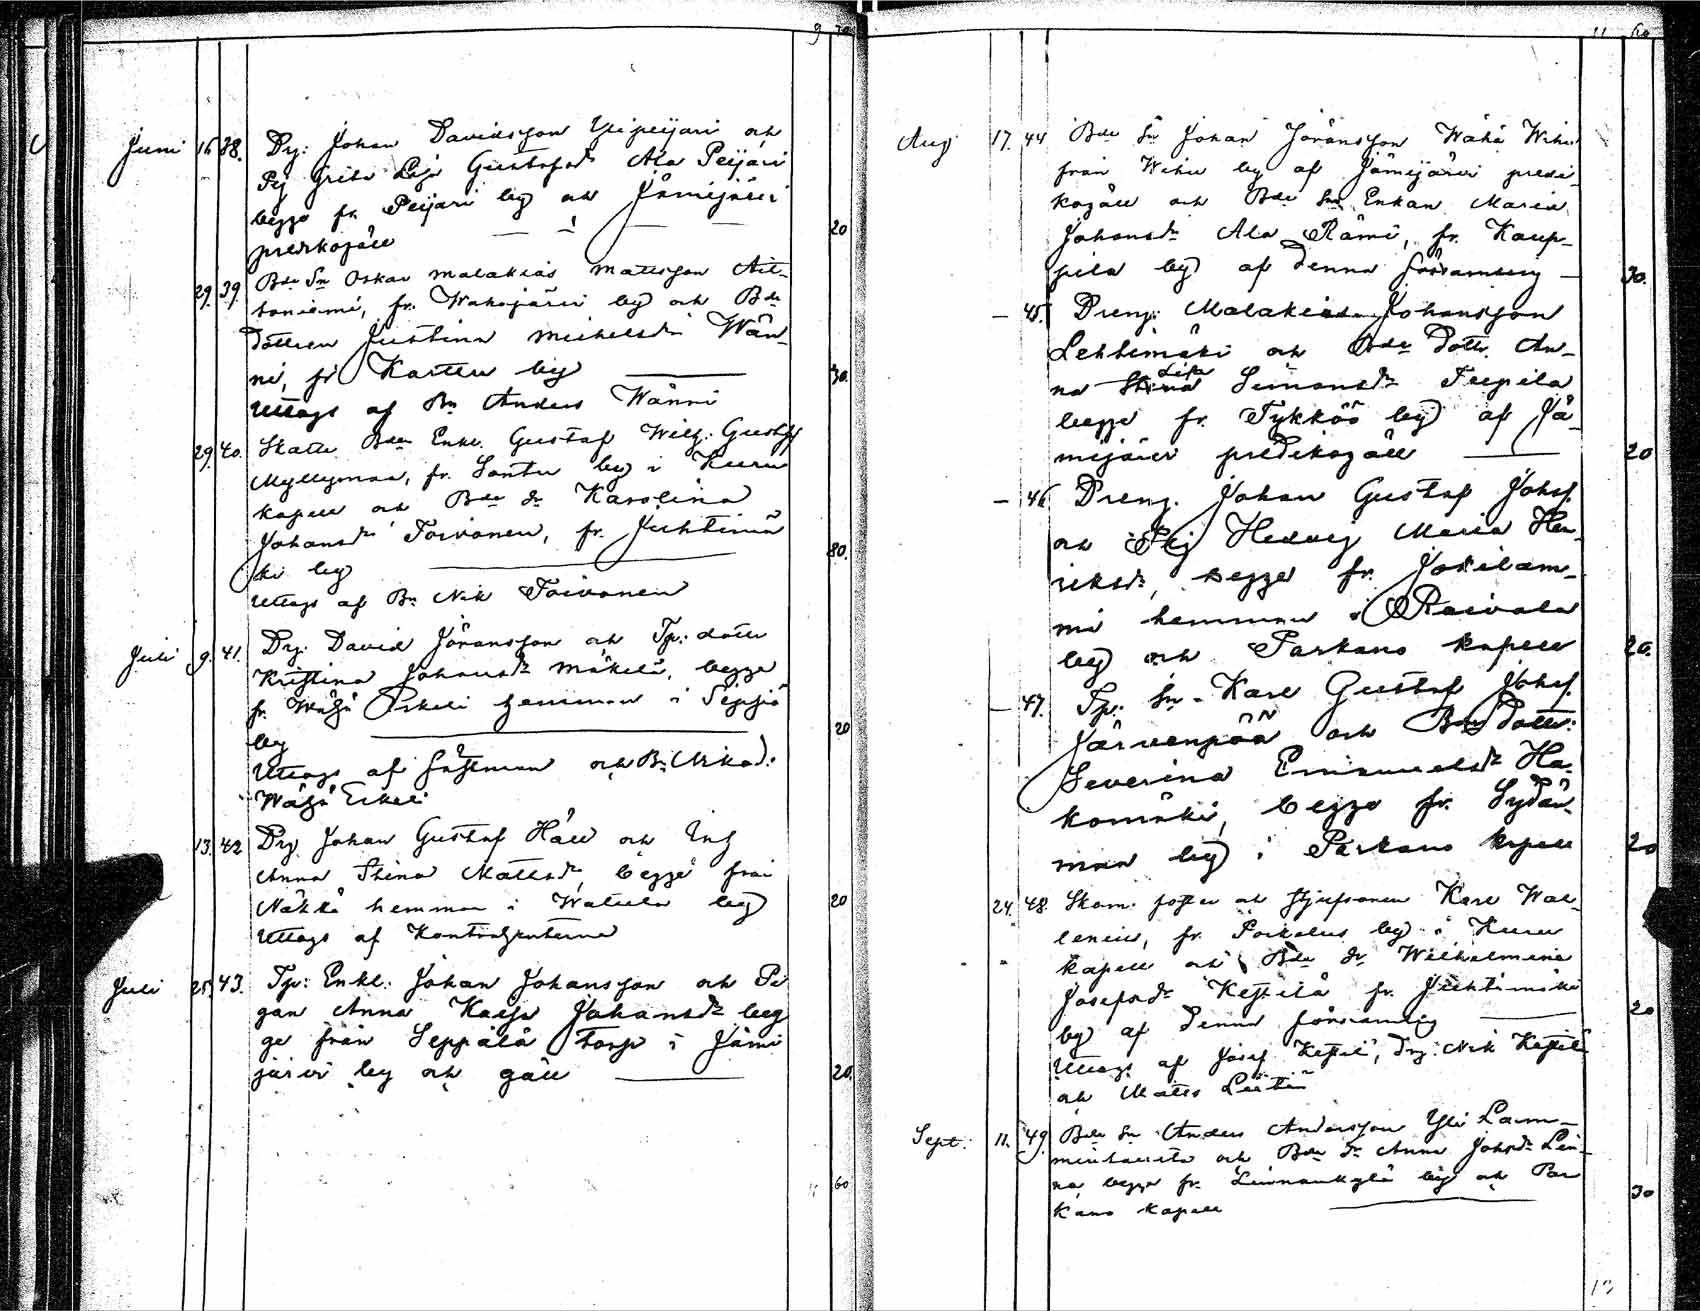 9 20
Juni 16 38. Drg: Johan Davidsson Ylipeijari och
Pig Greta Lisa Gustafsdr Ala Peijari
begge fr. Peijari by och Jämijärvi
predikogäll 20
29. 39. Bde Sn Oskar Malakias Mattsson
fr. by och Bde
dottren Justina Michelsdr Wän-
ni, fr Kartu by 30.
Uttags af Bn Anders Wänni
29. 40. Skatte Bden Enkl. Gustaf Wilh. Gustfs
Myllymaa, fr. Luntu by i Kuru
kapell och Bde dr Karolina
Johansdr Toivonen, fr. Juhtimä
ki by 80.
Uttags af Bn Nik Toivonen
Juli 9. 41. Drg. David Jöransson och Tp: dotter
Kristina Johansdr Mäkelä, begge
fr. Wähä Erkeli hemman i Seppä
by 20
Uttags af fästman och Bn Nikod:
Wähä Erkeli
13. 42 Drg Johan Gustaf Häll och Inh
Anna Stina Mattsdr, begge från
hemman i Watula by 20
Uttags af Kontrahenterna
Juli 25. 43. Tp: Enkl: Johan Johansson och Pi
gan Anna Kajsa Johansdr beg
ge från Seppälä torp i Jämi
järvi by och gäll 20.
60
11 60
Aug 17. 44 Bde Sn Johan Jöransson Wähä Wihu
från Wihu by af Jämijärvi predi-
kogäll och Bde Sns Enkan Maria
Johansdr Ala Rämi, fr. Kaup-
pila by af denna församling 30.
45. Dreng: Malakias Johansson
Lehtimäki och Bde Dottr. An-
na Lisa Simonsdr Teepila
begge fr. Tykköö by af Jä-
mijärvi predikogäll 20
46 Dreng. Johan Gustaf Johsf.
och Pig Hedvig Maria Hen-
riksdr, begge fr. Jokilam-
mi hemman i Raivala
by och Parkano kapell 20.
47. Tp: Sn. Karl Gustaf Johsf.
Järvenpää och Bns Dottr:
Severina Emanuelsdr Ha-
komäki, begge fr. Sydän-
maa by i Parkano kapell 20
24. 48. Skom: och Styfsonen Karl Wal-
lenius, fr. by i Kuru
kapell och Bde dr Wilhelmina
Josefsdr Kestilä fr. Juhtimäki
by af denna församling 20
Uttags af Josef Kestilä, Drg: Nik Kestilä
och Matts
Sept. 11. 49. Bde Sn Anders Andersson Yli Lam-
och Bde dr Anna Johsdr Lin-
na begge fr. Linnankylä by och Par
kano kapell 30